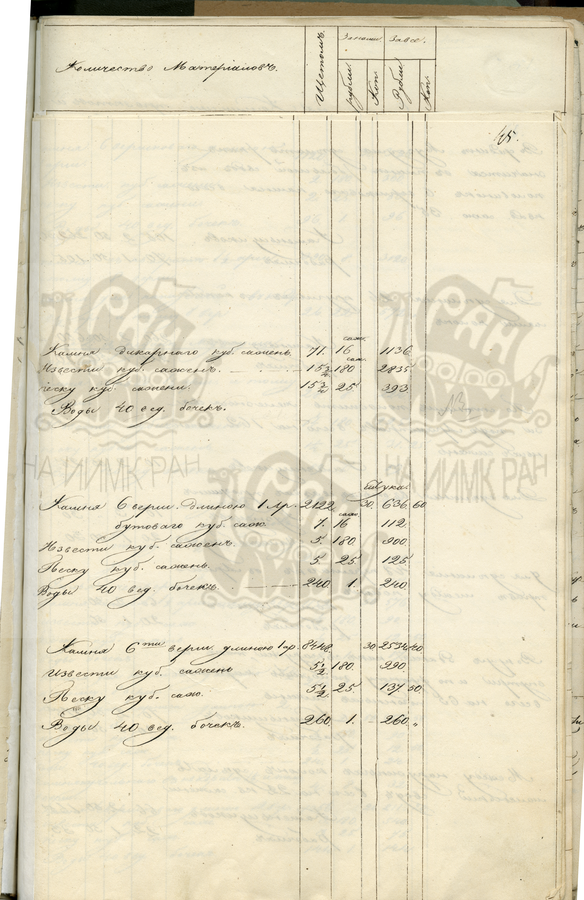 Количество Матеріаловъ.
Щетомъ. За каж. За все.
рубли. Коп. Рубли Коп.
45.
саж.
Камня дикарнаго куб. сажень. 71. 16 1136
саж.
Извести куб. сажень. 15¾ 180 2835
Песку куб. сажени. 15¾ 25 393
Воды 40 вед. бочекъ.
Камня 6 верш. длиною 1 ар. 2122 30. 636. 60
саж.
бутоваго куб. саж. 7. 16 112.
Извести куб. сажень. 5 180. 900
Песку куб. сажень. 5 25 125
Воды 40 вед. бочекъ. 240 1. 240
Камня 6ти верш. длиною 1 ар. 8448. 30 2534. 40
Извести куб. сажень 5½ 180. 990.
Песку куб. саж. 5½ 25 137 50
Воды 40 вед. бочекъ. 260 1. 260.
НА ИИМК РАН
НА ИИМК РАН